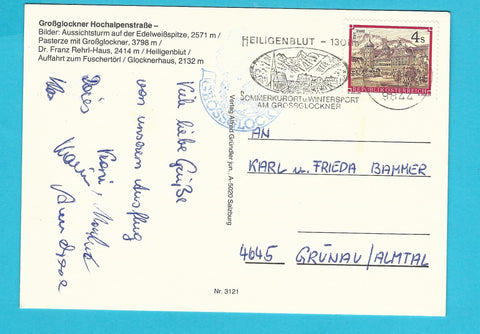 Großglockner Hochalpenstraße –
Bilder: Aussichtsturm auf der Edelweißspitze, 2571 m /
Pasterze mit Großglockner, 3798 m /
Dr. Franz Rehrl-Haus, 2414 m / Heiligenblut /
Auffahrt zum Fuschertörl / Glocknerhaus, 2132 m
Viele liebe Grüße
von unserem Ausflug
Doris
Verlag Alfred Gründler jun., A-5020 Salzburg
Nr. 3121
HEILIGENBLUT – 1301 m
SOMMERKURORT u. WINTERSPORT
AM GROSSGLOCKNER
GROSSGLOCK
4 S
REPUBLIK ÖSTERREICH
AN
KARL u. FRIEDA BAMMER
4645 GRÜNAU/ALMTAL